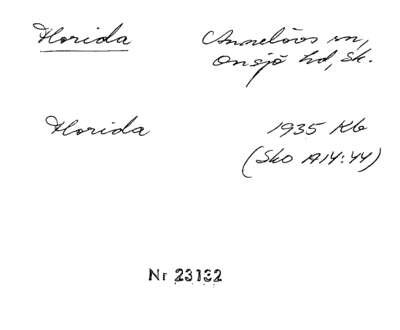 Florida Annelövs sn,
Onsjö hd, Sk.
Florida 1935 Kb
(Sko A14:44)
Nr 23132